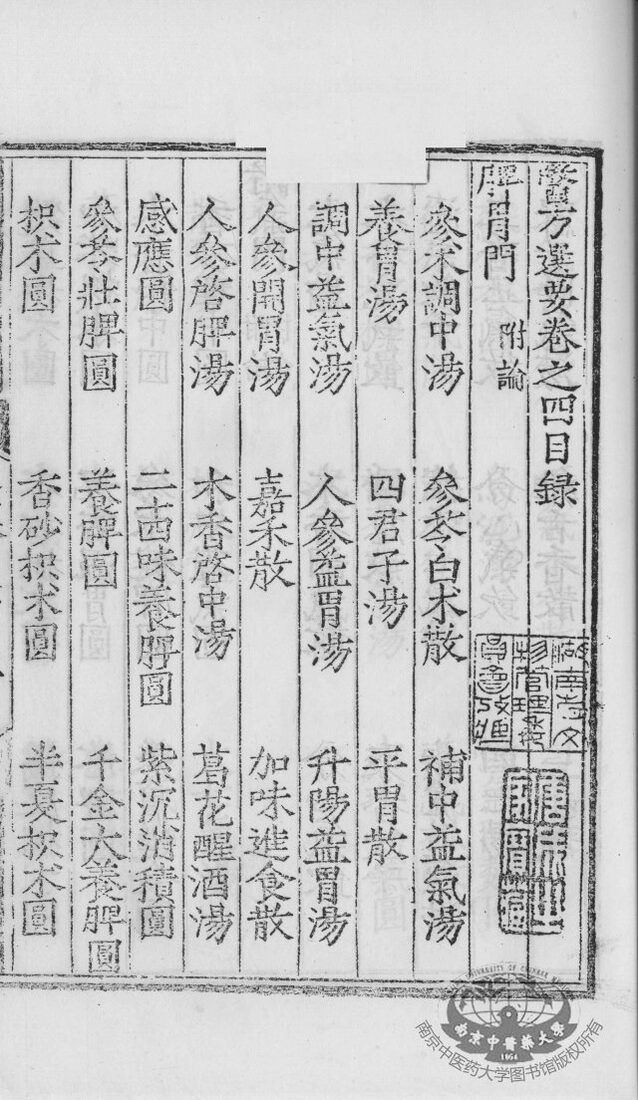 醫方選要卷之四目録
脾胃門 附論
參朮調中湯 參苓白朮散 補中益氣湯
養胃湯 四君子湯 平胃散
調中益氣湯 人參益胃湯 升陽益胃湯
人參開胃湯 嘉禾散 加味進食散
人參啓脾湯 木香啓中湯 葛花醒酒湯
感應圓 二十四味養脾圓 紫沉消積圓
參苓壯脾圓 養脾圓 千金大養脾圓
枳朮圓 香砂枳朮圓 半夏枳朮圓
UNIVERSITY OF CHINESE
南京中醫藥大學
1954
南京中医药大学图书馆版权所有